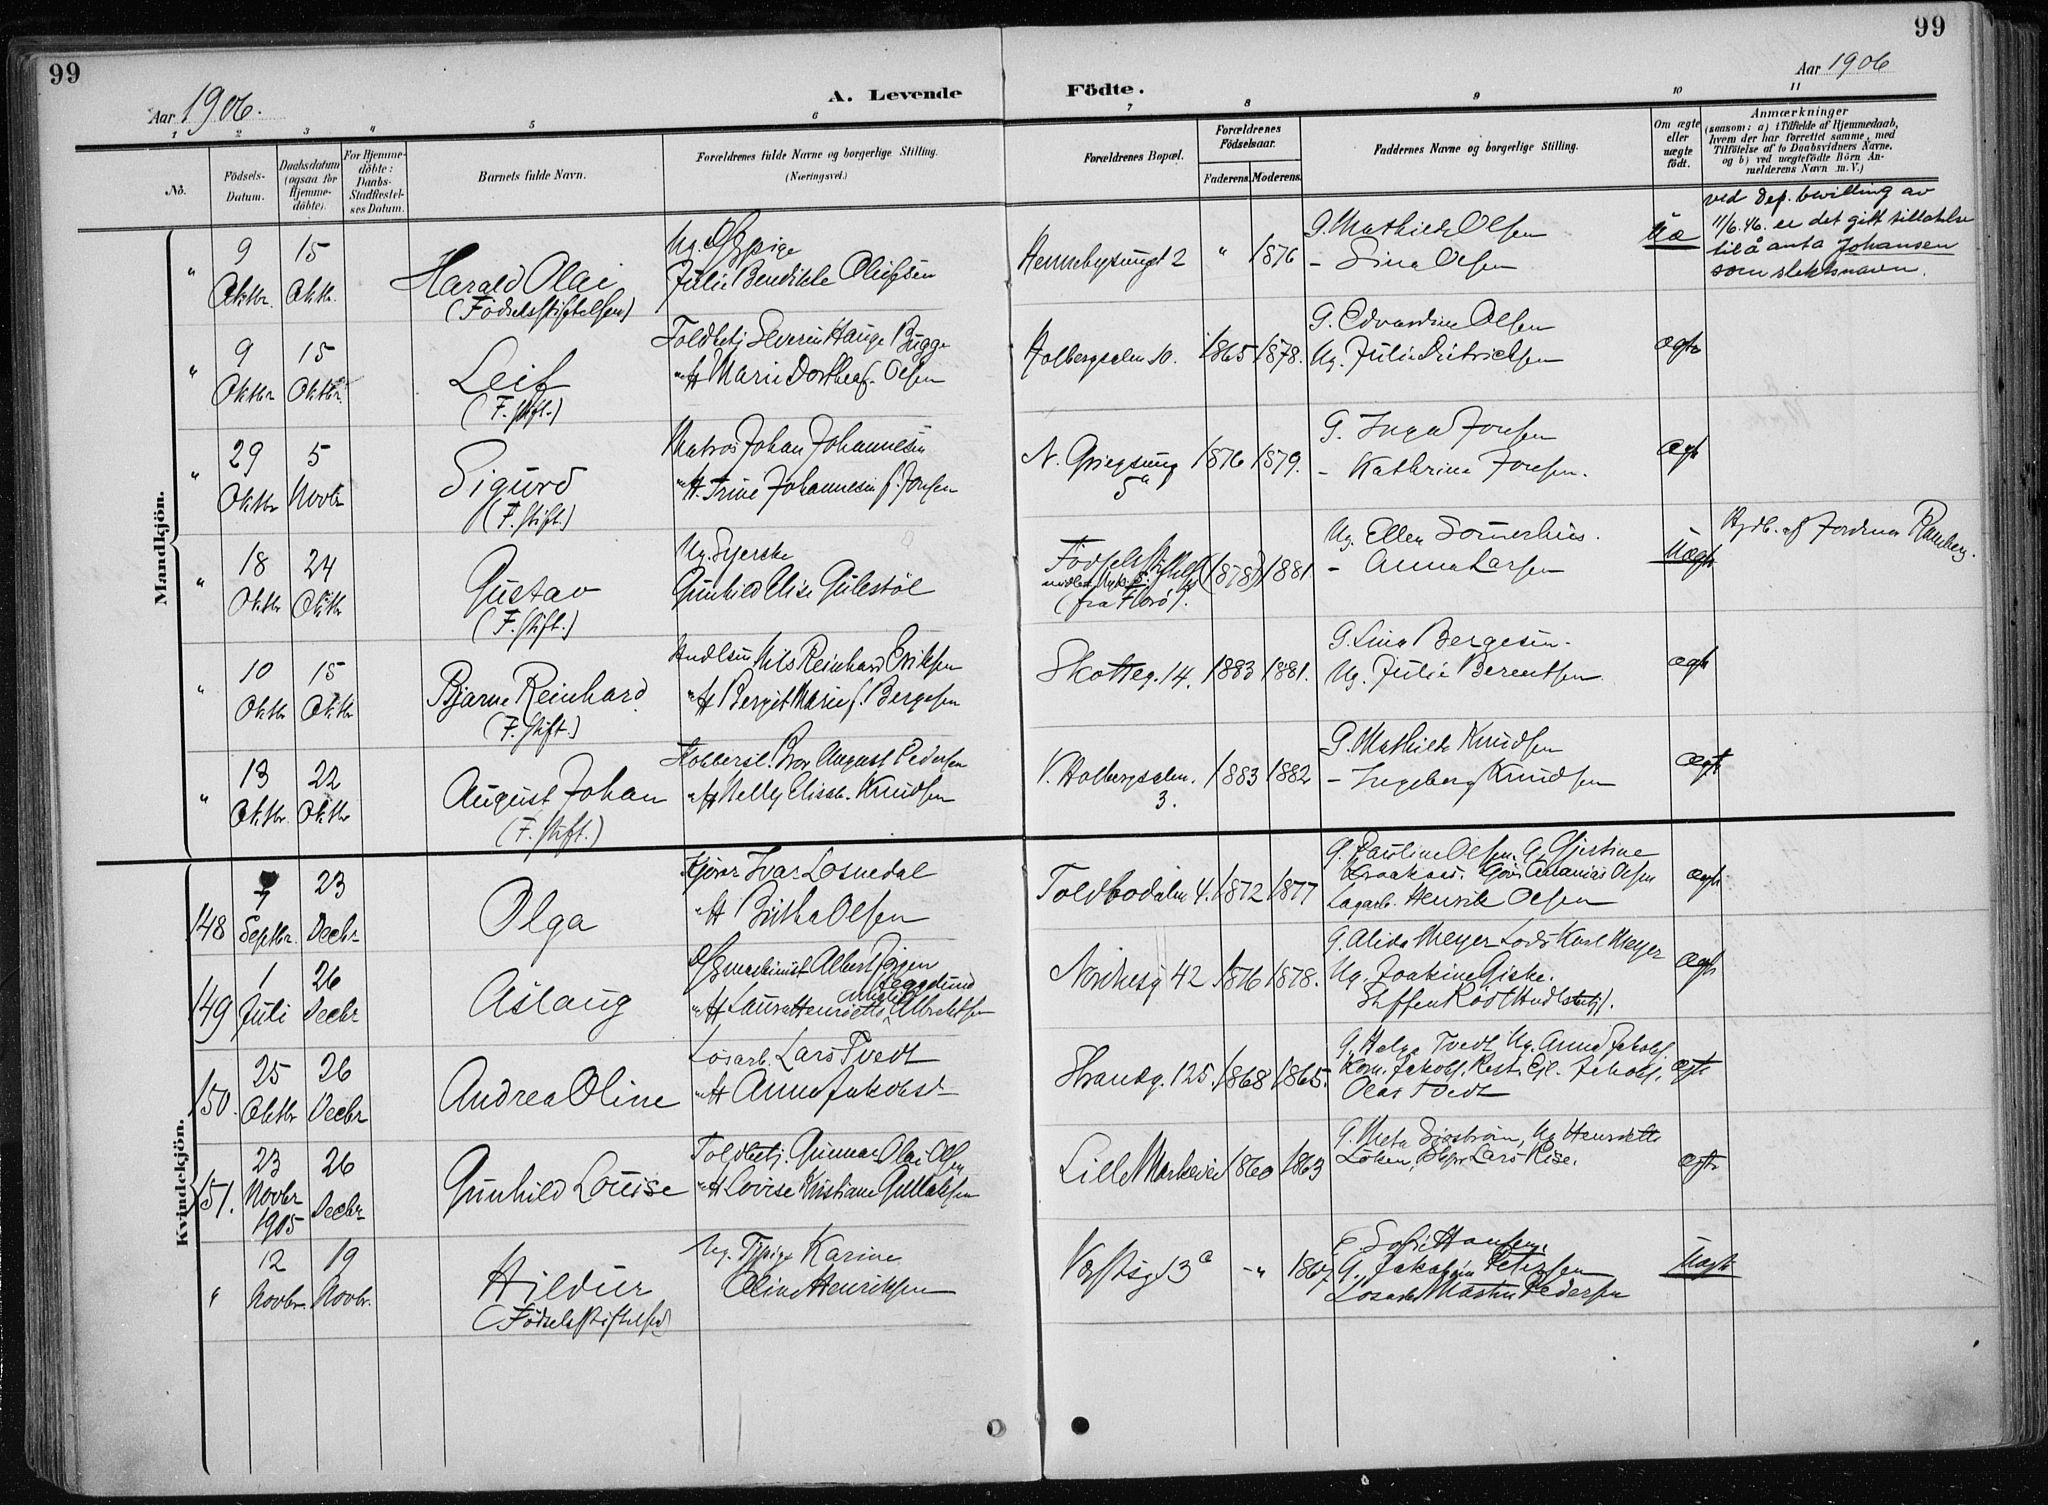 99
99
Aar 1906.
A. Levende
Födte.
Aar 1906
1 2 3 4 5 6 7 8 9 10 11
No.
Födsels-
Datum.
Daabsdatum
(ogsaa for
Hjemme-
döbte).
For Hjemme-
döbte:
Daabs-
Stadfæstel-
ses Datum.
Barnets fulde Navn.
Forældrenes fulde Navne og borgerlige Stilling.
(Næringsvei.)
Forældrenes Bopæl.
Forældrenes
Födselsaar.
Faderens.
Moderens.
Faddernes Navne og borgerlige Stilling.
Om ægte
eller
uægte
født.
Anmærkninger
(saasom: a) i Tilfælde af Hjemmedaab,
hvem der har forrettet samme, med
Tilföielse af to Daabsvidners Navne,
og b) ved uægtefödte Börn An-
melderens Navn m. V.)
Mandkjön.
" 9 Oktbr. 15 Oktbr.
Harald Olai
(Fødselsstiftelsen)
Julie Bendikte
Hennebysmugt 2 " 1876
G. Mathilde Olsen
- Sina Olsen
Uæ
ved Dep. bevilling av
11/6.46. er det gitt tillatelse
til å anta Johansen
som slektsnavn.
" 9 Oktbr 15 Oktbr.
Leif
(F. stift.)
Toldbetj Severin Hauge Bugge
"H Marie Dorthea f. Olsen
Holbergsalm 10. 1865 1878.
G. Edvardine Olsen
Ug. Julie Dietrichsen
ægte
" 29 Oktbr 5 Novbr
Sigurd
(F. stift.)
Matros Johan Johannesen
"H. Trine Johannesen f. Jonsen
N. Griegsmug 5a 1876 1879.
G. Inga Jonsen
- Kathrine Jonsen.
ægte
" 18 Oktbr 24 Oktbr
Gustav
(F. stift.)
Ug. Syerske
Gunhild Elise Gulestøl
Fødselsstiftelsen (1878) 1881
(fra Florø).
Ug. Ellen Sømerhus.
- Anna Larsen
Uægte
" 10 Oktbr 15 Oktbr
Bjarne Reinhard
(F. stift.)
Nils Reinhard Eriksen
"H Bergit Marie f. Bergesen
Skotteg. 14. 1883 1881.
G. Lina Bergesen.
Ug. Julie Berentsen
ægte
" 13 Oktbr. 22 Oktbr
August Johan
(F. stift.)
August Pedersen
"H Nelly Elisab. Knudsen
V. Holbergsalm. 3. 1883 1882
G. Mathilde Knudsen
- Ingeborg Knudsen
ægte
Kvindekjön.
148 7 Septbr. 23 Decbr
Olga
Kjører Ivar Losnedal
"H Britha Olsen
Toldbodalm 4. 1872 1877
G. Pauline Olsen. G. Gjertine
Lagarb. Henrik Olsen
ægte
149 1 Juli 26 Decbr
Aslaug
D/S maskinist Albert Jørgen
"H Laura Henriette Albrektsen
Nordnesg 42 1876 1878.
G. Alida Meyer Lods Karl Meyer
Ug. Joakine Giske.
ægte
150. 25 Oktbr 26 Decbr
Andrea Oline
Løsarb. Lars Tvedt
"H Anna Jakobsd
Strandg. 125. 1868 1865.
G. Helga Tvedt Ug. Anna Jakobs.
Olas Tvedt
ægte
151. 23 Novbr 1905 26 Decbr
Gunhild Louise
Toldbetj. Gunnar Olai Olsen
"H Lovise Kristiane Gullaksen
Lille Markevei 1860 1863
G. Meta Sjøstrøm, Ug Henriette
Løken, Lars Rise.
ægte
" 12 Novbr. 19 Novbr.
Hildur
(Fødselsstiftelsen)
Ug. Tjpige Karine
Oline Henriksen
Verftsg 3 " 1867
E. Sofie Hansen.
G. Petersen
Løsarb Martin Pedersen
Uægte